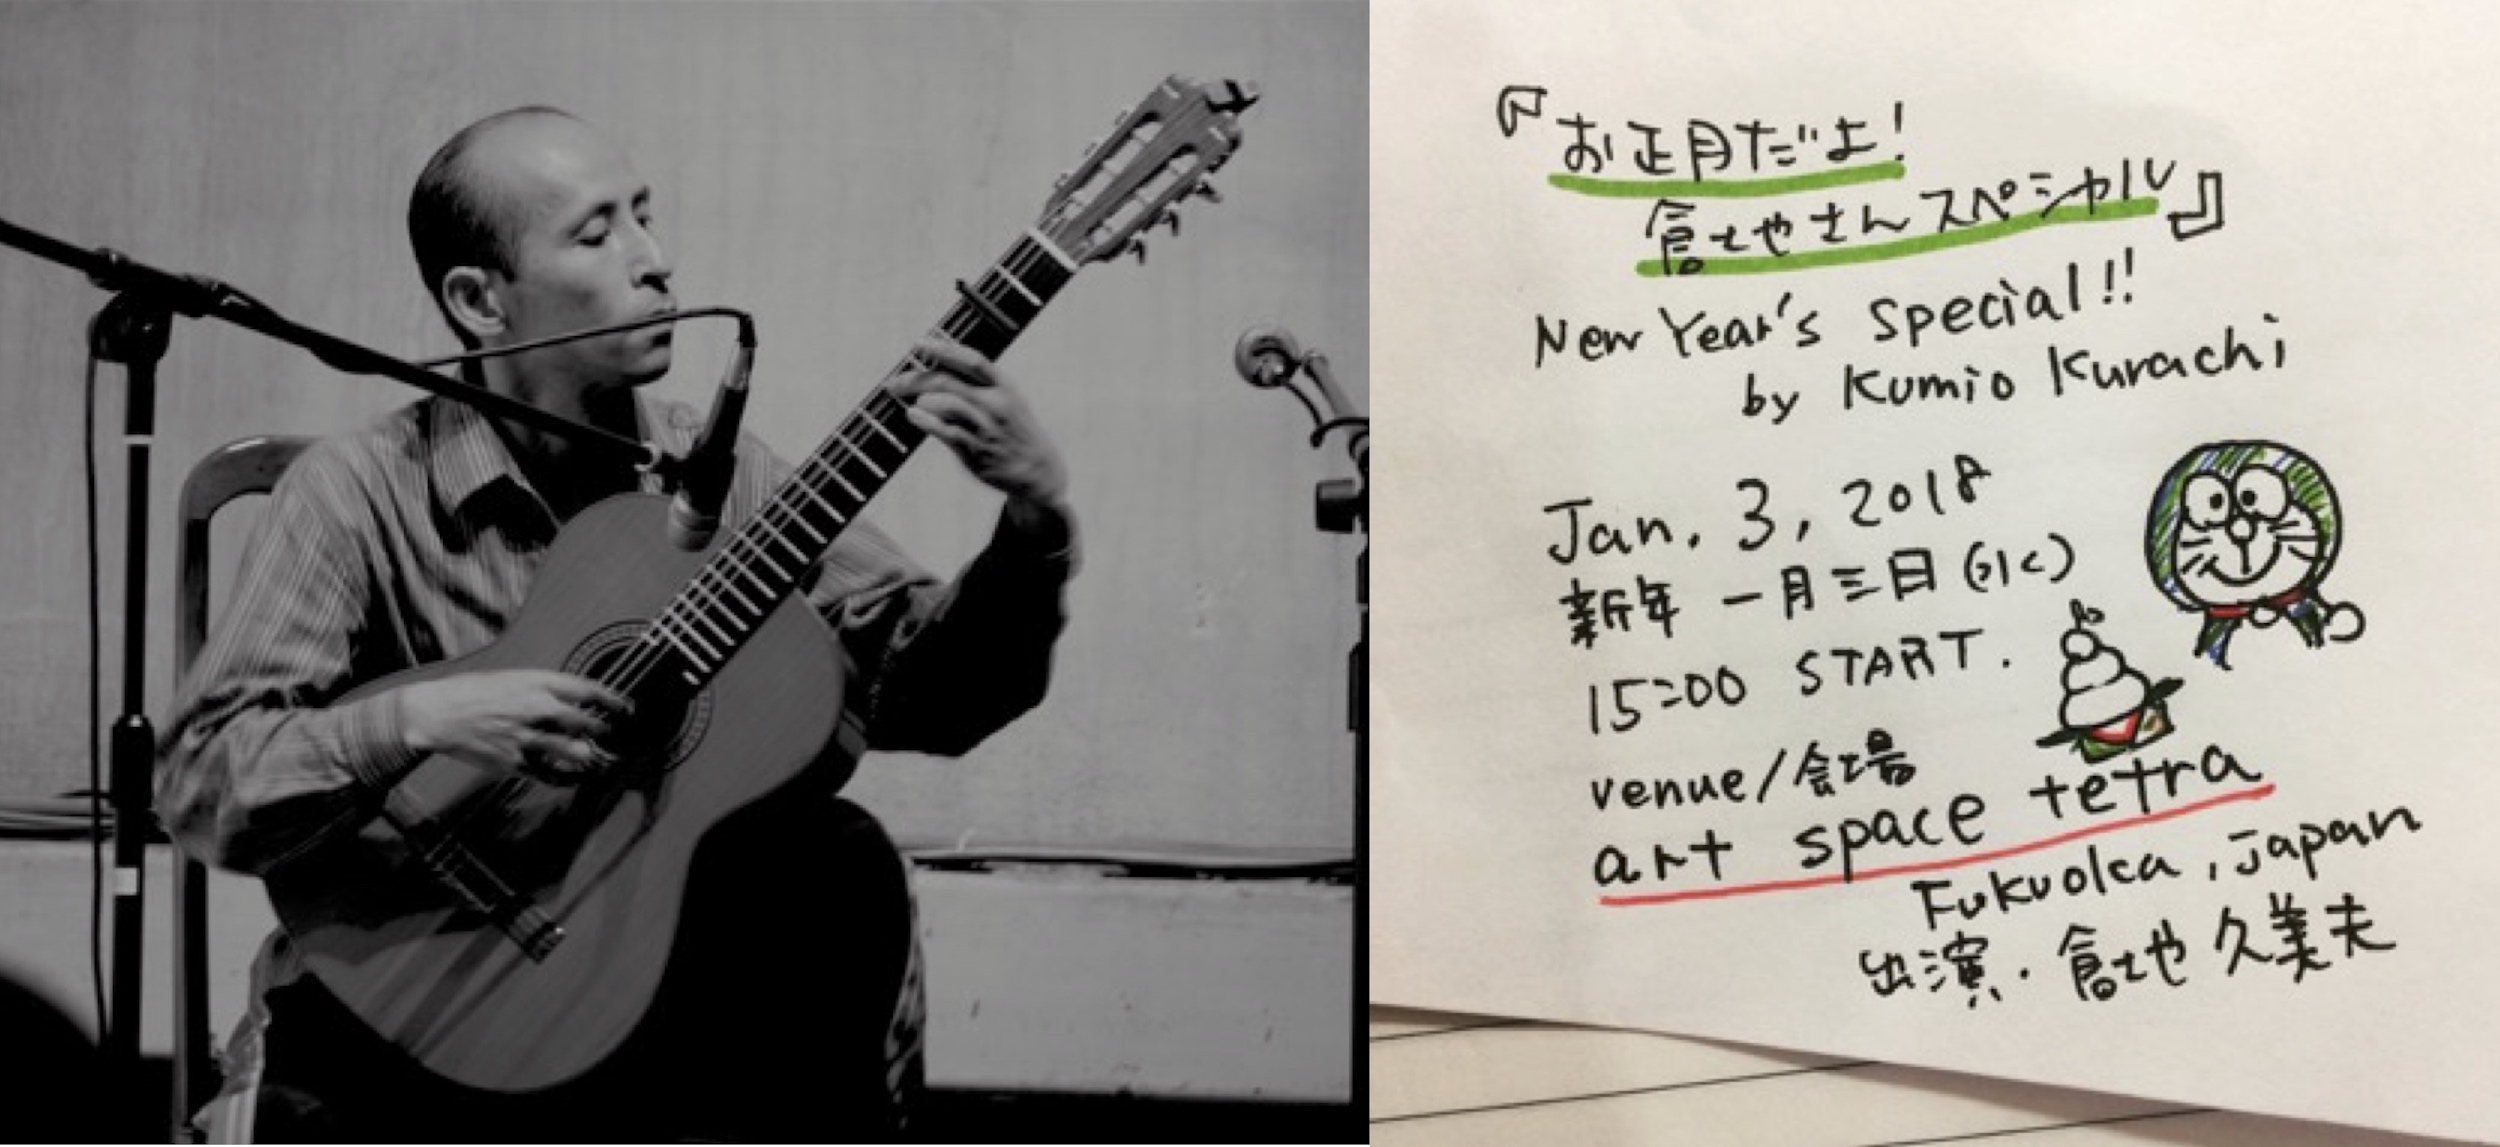 『お正月だよ!
倉地さんスペシャル』
New Year's special!!
by Kumio Kurachi
Jan. 3, 2018
新年 一月三日 (水)
15:00 START.
venue/会場
art space tetra
Fukuoka, Japan
出演・倉地久美夫